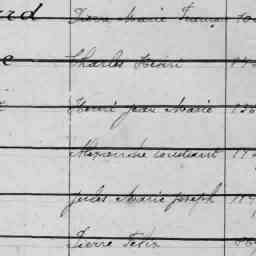 rd Pierre Marie François
e Charles Henri
Henri Jean Marie
Alexandre constant
jules Marie joseph
Pierre Felix